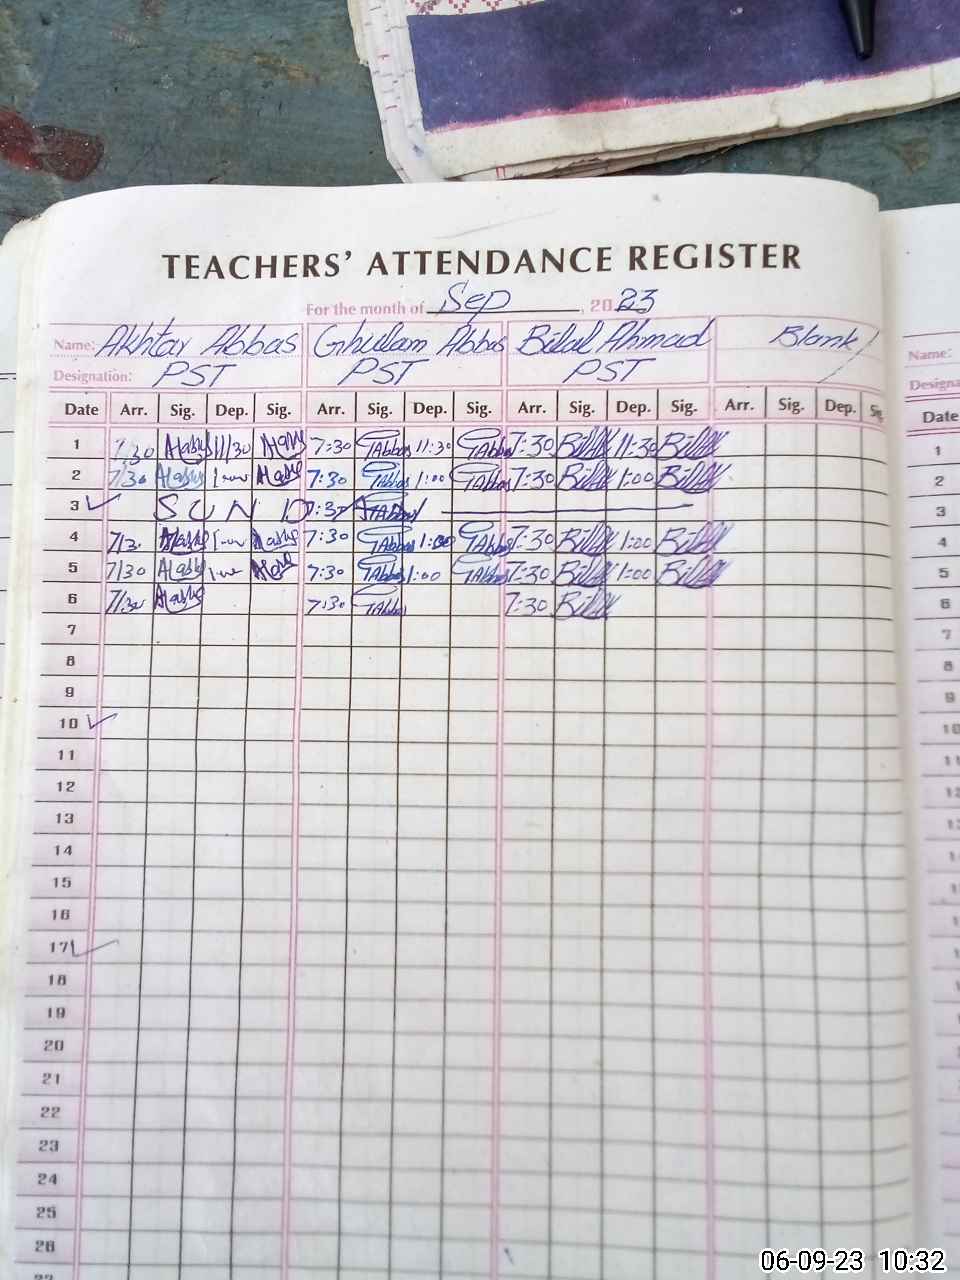 TEACHERS' ATTENDANCE REGISTER
For the month of Sep, 2023
Name: Akhtar Abbas Ghulam Abbas Bilal Ahmad Blank Name:
Designation: PST PST PST Designa
Date Arr. Sig. Dep. Sig. Arr. Sig. Dep. Sig. Arr. Sig. Dep. Sig. Arr. Sig. Dep. Sig. Date
1 7/30 11/30 7:30 GAbbas 11:30 GAbbas 7:30 Bilal 11:30 Bilal 1
2 7/30 7:30 GAbbas 1:00 GAbbas 7:30 Bilal 1:00 Bilal 2
3 ✓ S U N D 7:30 GAbbas 3
4 7/30 7:30 GAbbas 1:00 GAbbas 7:30 Bilal 1:00 Bilal 4
5 7/30 7:30 GAbbas 1:00 GAbbas 7:30 Bilal 1:00 Bilal 5
6 7/30 7:30 GAbbas 7:30 Bilal 6
7 7
8 8
9 9
10 ✓ 10
11 11
12
13
14
15
16
17 ✓
18
19
20
21
22
23
24
25
26
27
06-09-23 10:32